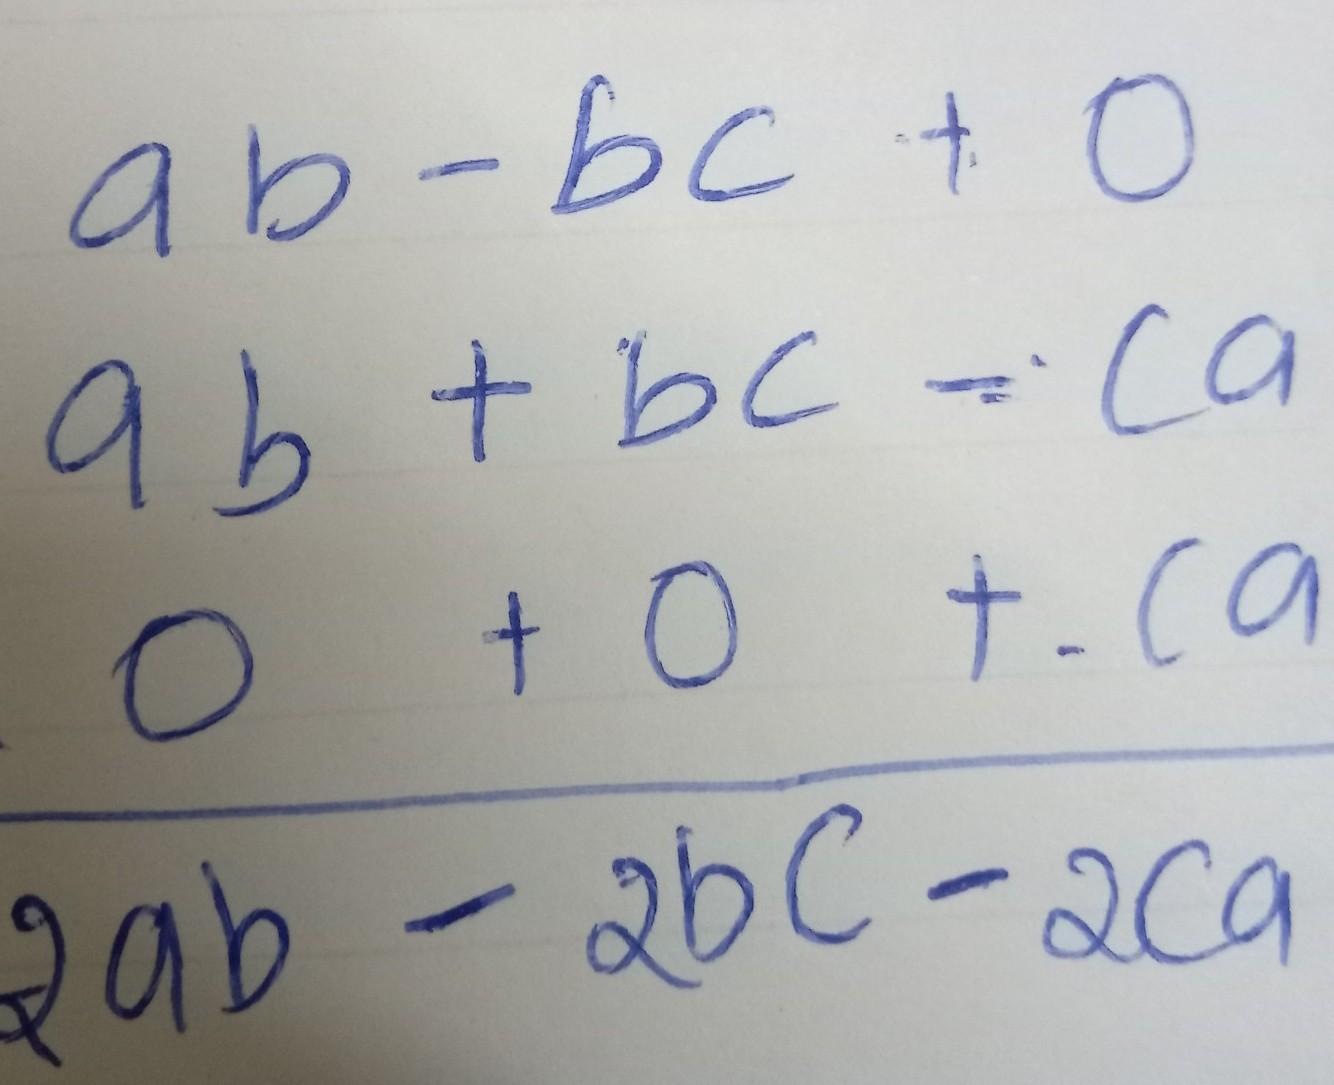 ab - bc + 0
ab + bc - ca
0 + 0 + ca
2ab - 2bc - 2ca